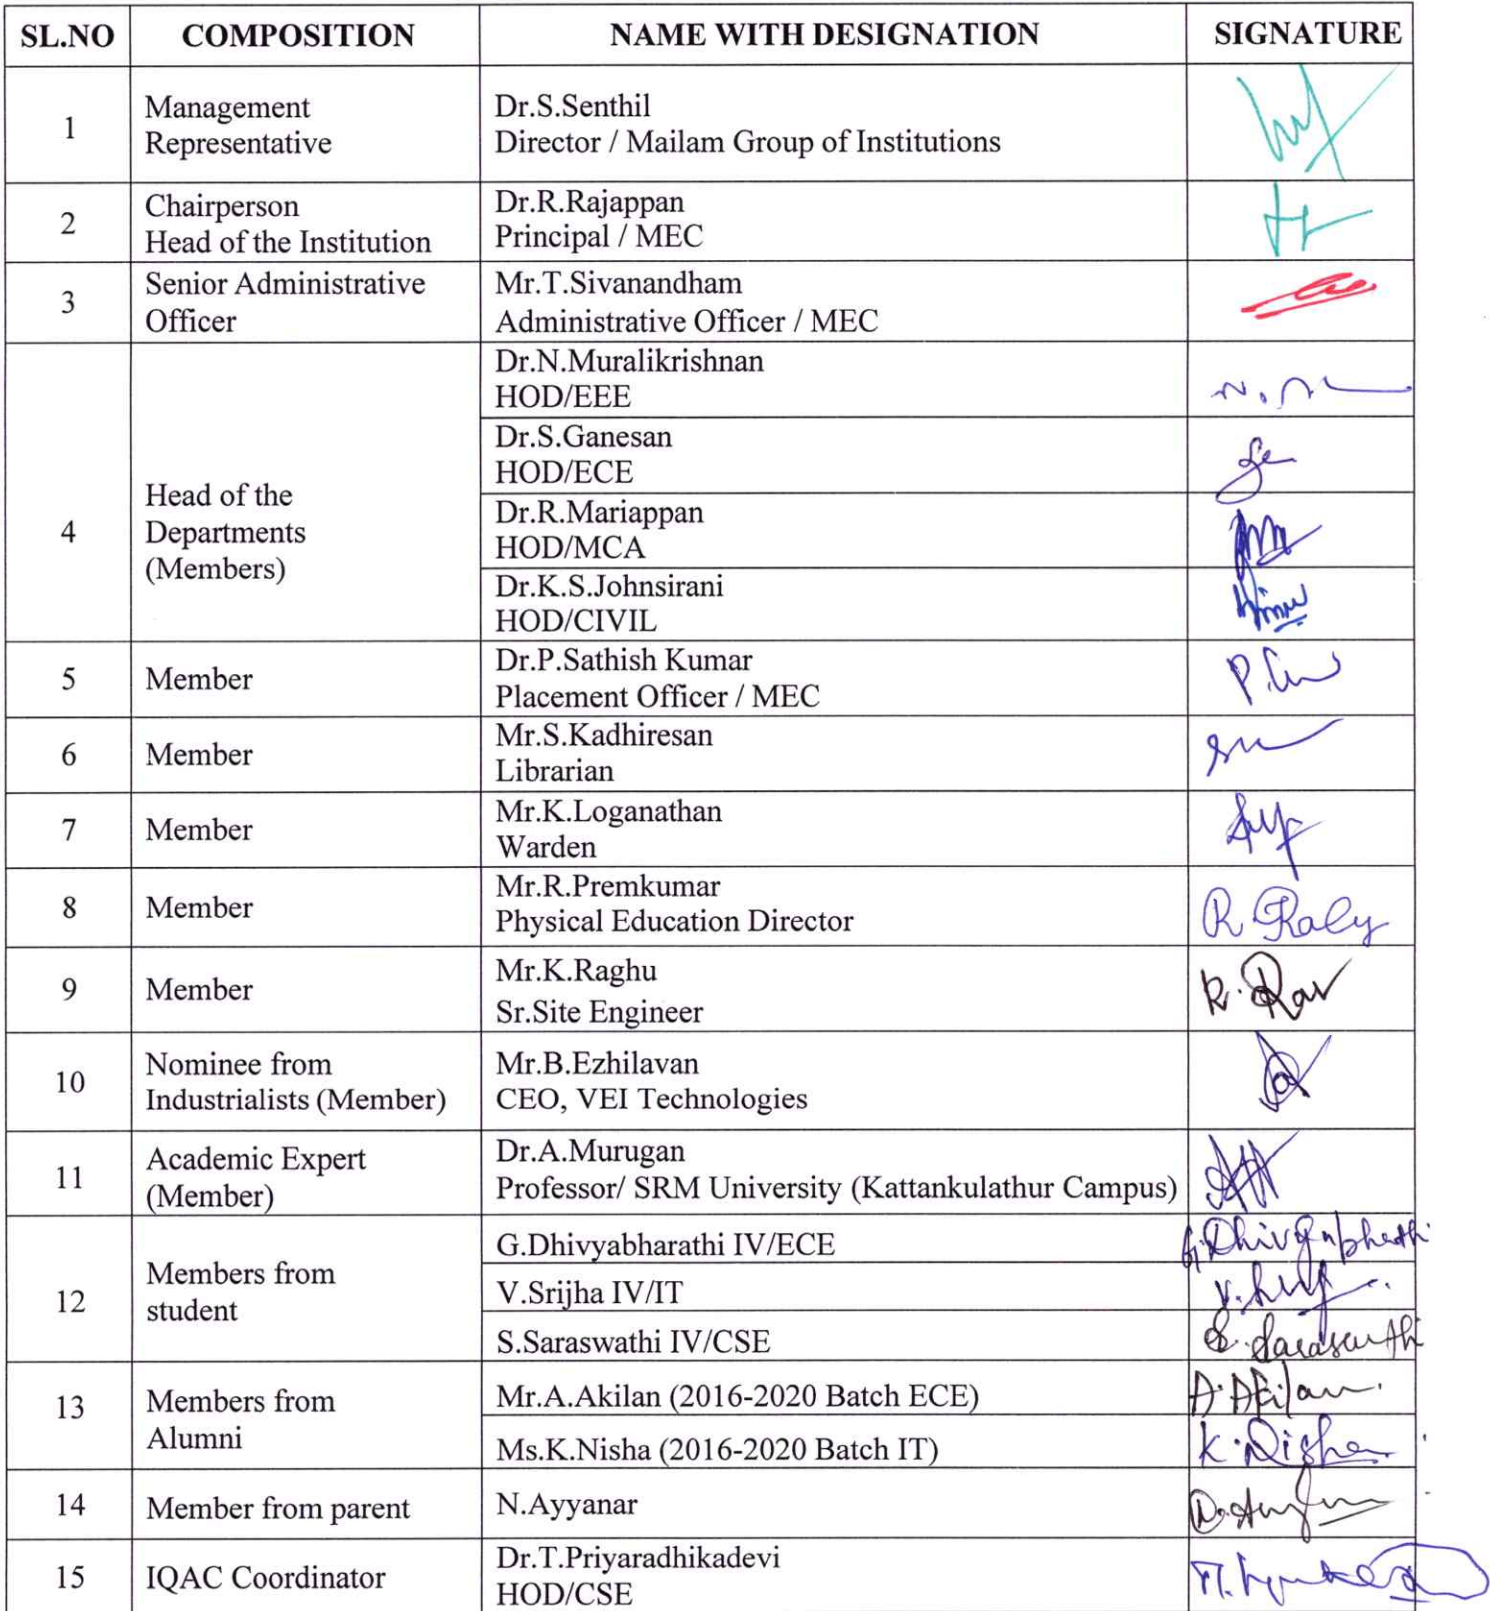 SL.NO COMPOSITION NAME WITH DESIGNATION SIGNATURE
1
Management
Representative
Dr.S.Senthil
Director / Mailam Group of Institutions
2
Chairperson
Head of the Institution
Dr.R.Rajappan
Principal / MEC
3
Senior Administrative
Officer
Mr.T.Sivanandham
Administrative Officer / MEC
4
Head of the
Departments
(Members)
Dr.N.Muralikrishnan
HOD/EEE
Dr.S.Ganesan
HOD/ECE
Dr.R.Mariappan
HOD/MCA
Dr.K.S.Johnsirani
HOD/CIVIL
5
Member
Dr.P.Sathish Kumar
Placement Officer / MEC
6
Member
Mr.S.Kadhiresan
Librarian
7
Member
Mr.K.Loganathan
Warden
8
Member
Mr.R.Premkumar
Physical Education Director
9
Member
Mr.K.Raghu
Sr.Site Engineer
10
Nominee from
Industrialists (Member)
Mr.B.Ezhilavan
CEO, VEI Technologies
11
Academic Expert
(Member)
Dr.A.Murugan
Professor/ SRM University (Kattankulathur Campus)
12
Members from
student
G.Dhivyabharathi IV/ECE
V.Srijha IV/IT
S.Saraswathi IV/CSE
S.Saraswathi
13
Members from
Alumni
Mr.A.Akilan (2016-2020 Batch ECE)
A.Akilan.
Ms.K.Nisha (2016-2020 Batch IT)
K.Nisha
14
Member from parent
N.Ayyanar
15
IQAC Coordinator
Dr.T.Priyaradhikadevi
HOD/CSE